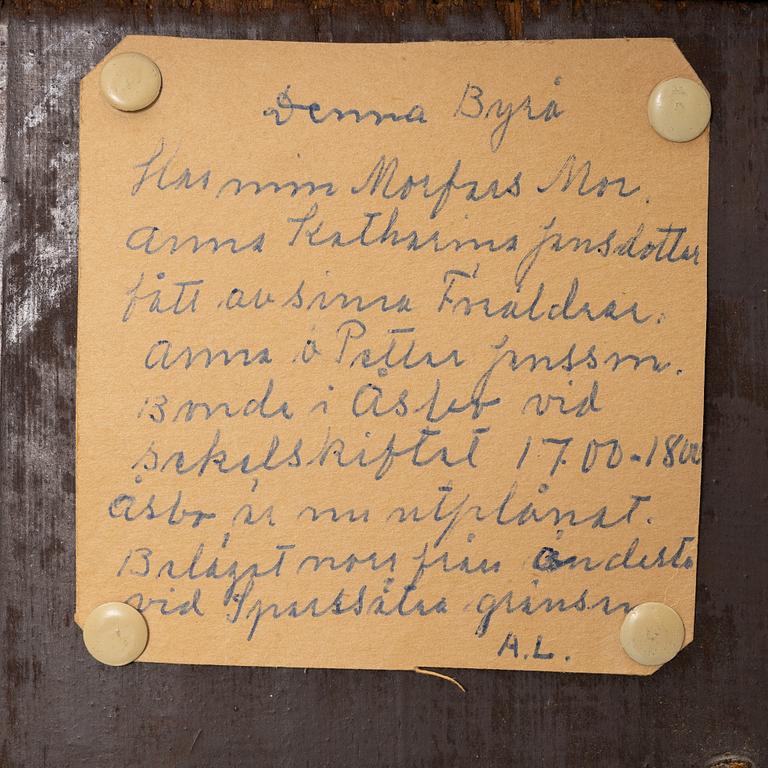 Denna Byrå
Har min Morfars Mor.
Anna Katharina Jansdotter
fått av sina Föräldrar.
Anna o Petter Jansson.
Bonde i Åsbo vid
sekelskiftet 1700-1800
Åsbo är nu utplånat.
Beläget norr från
vid Sparrsätra gränsen
A.L.